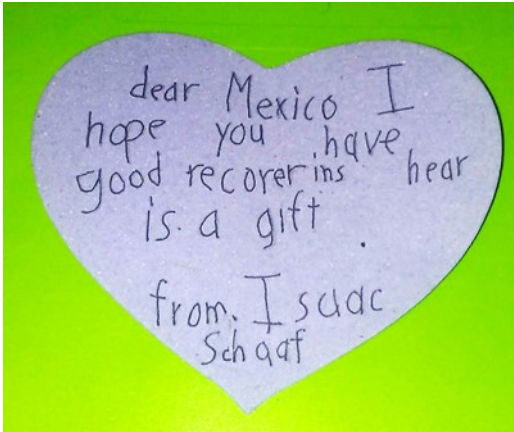 dear Mexico I
hope you have
good recorerins hear
is a gift.
from. Isaac
Schaaf